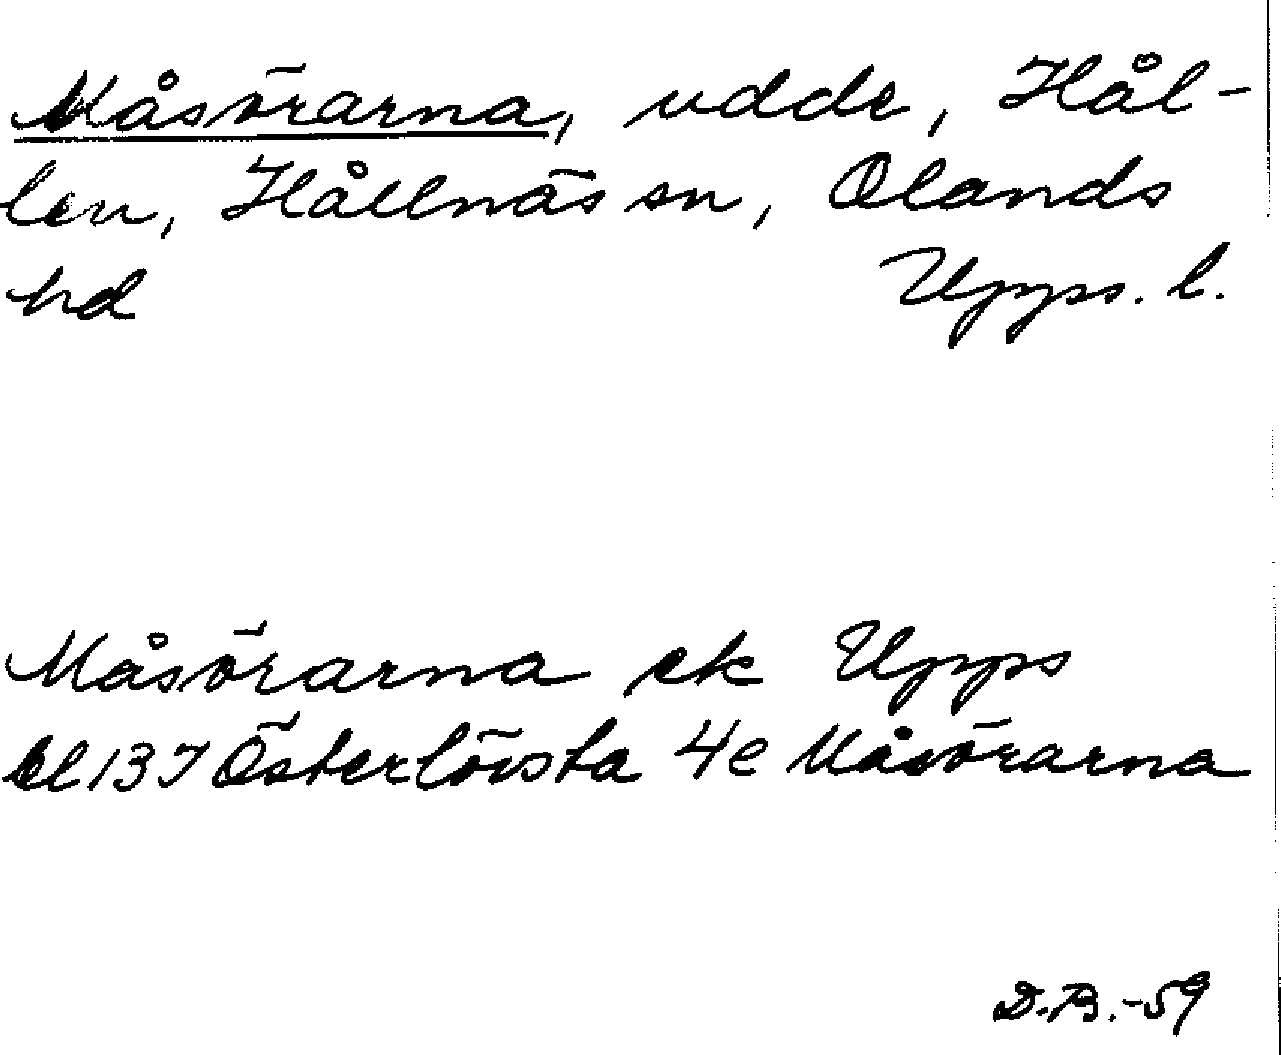 Måsörarna, udde, Hål-
len, Hållnäs sn, Olands
hd Upps. l.
Måsörarna ek Upps
bl 137 Österlövsta 4e Måsörarna
D.B.-59